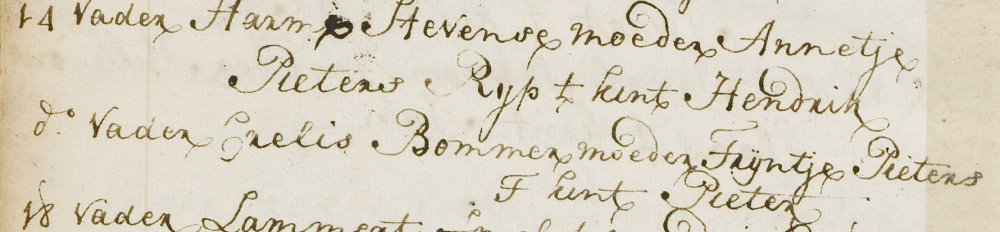 14 Vader Harme Stevense moeder Annetje
Pieters Ryp t kint Hendrik
do. Vader Crelis Bommer moeder Tryntje Pieters
T kint Pieter
18 Vader Lammert